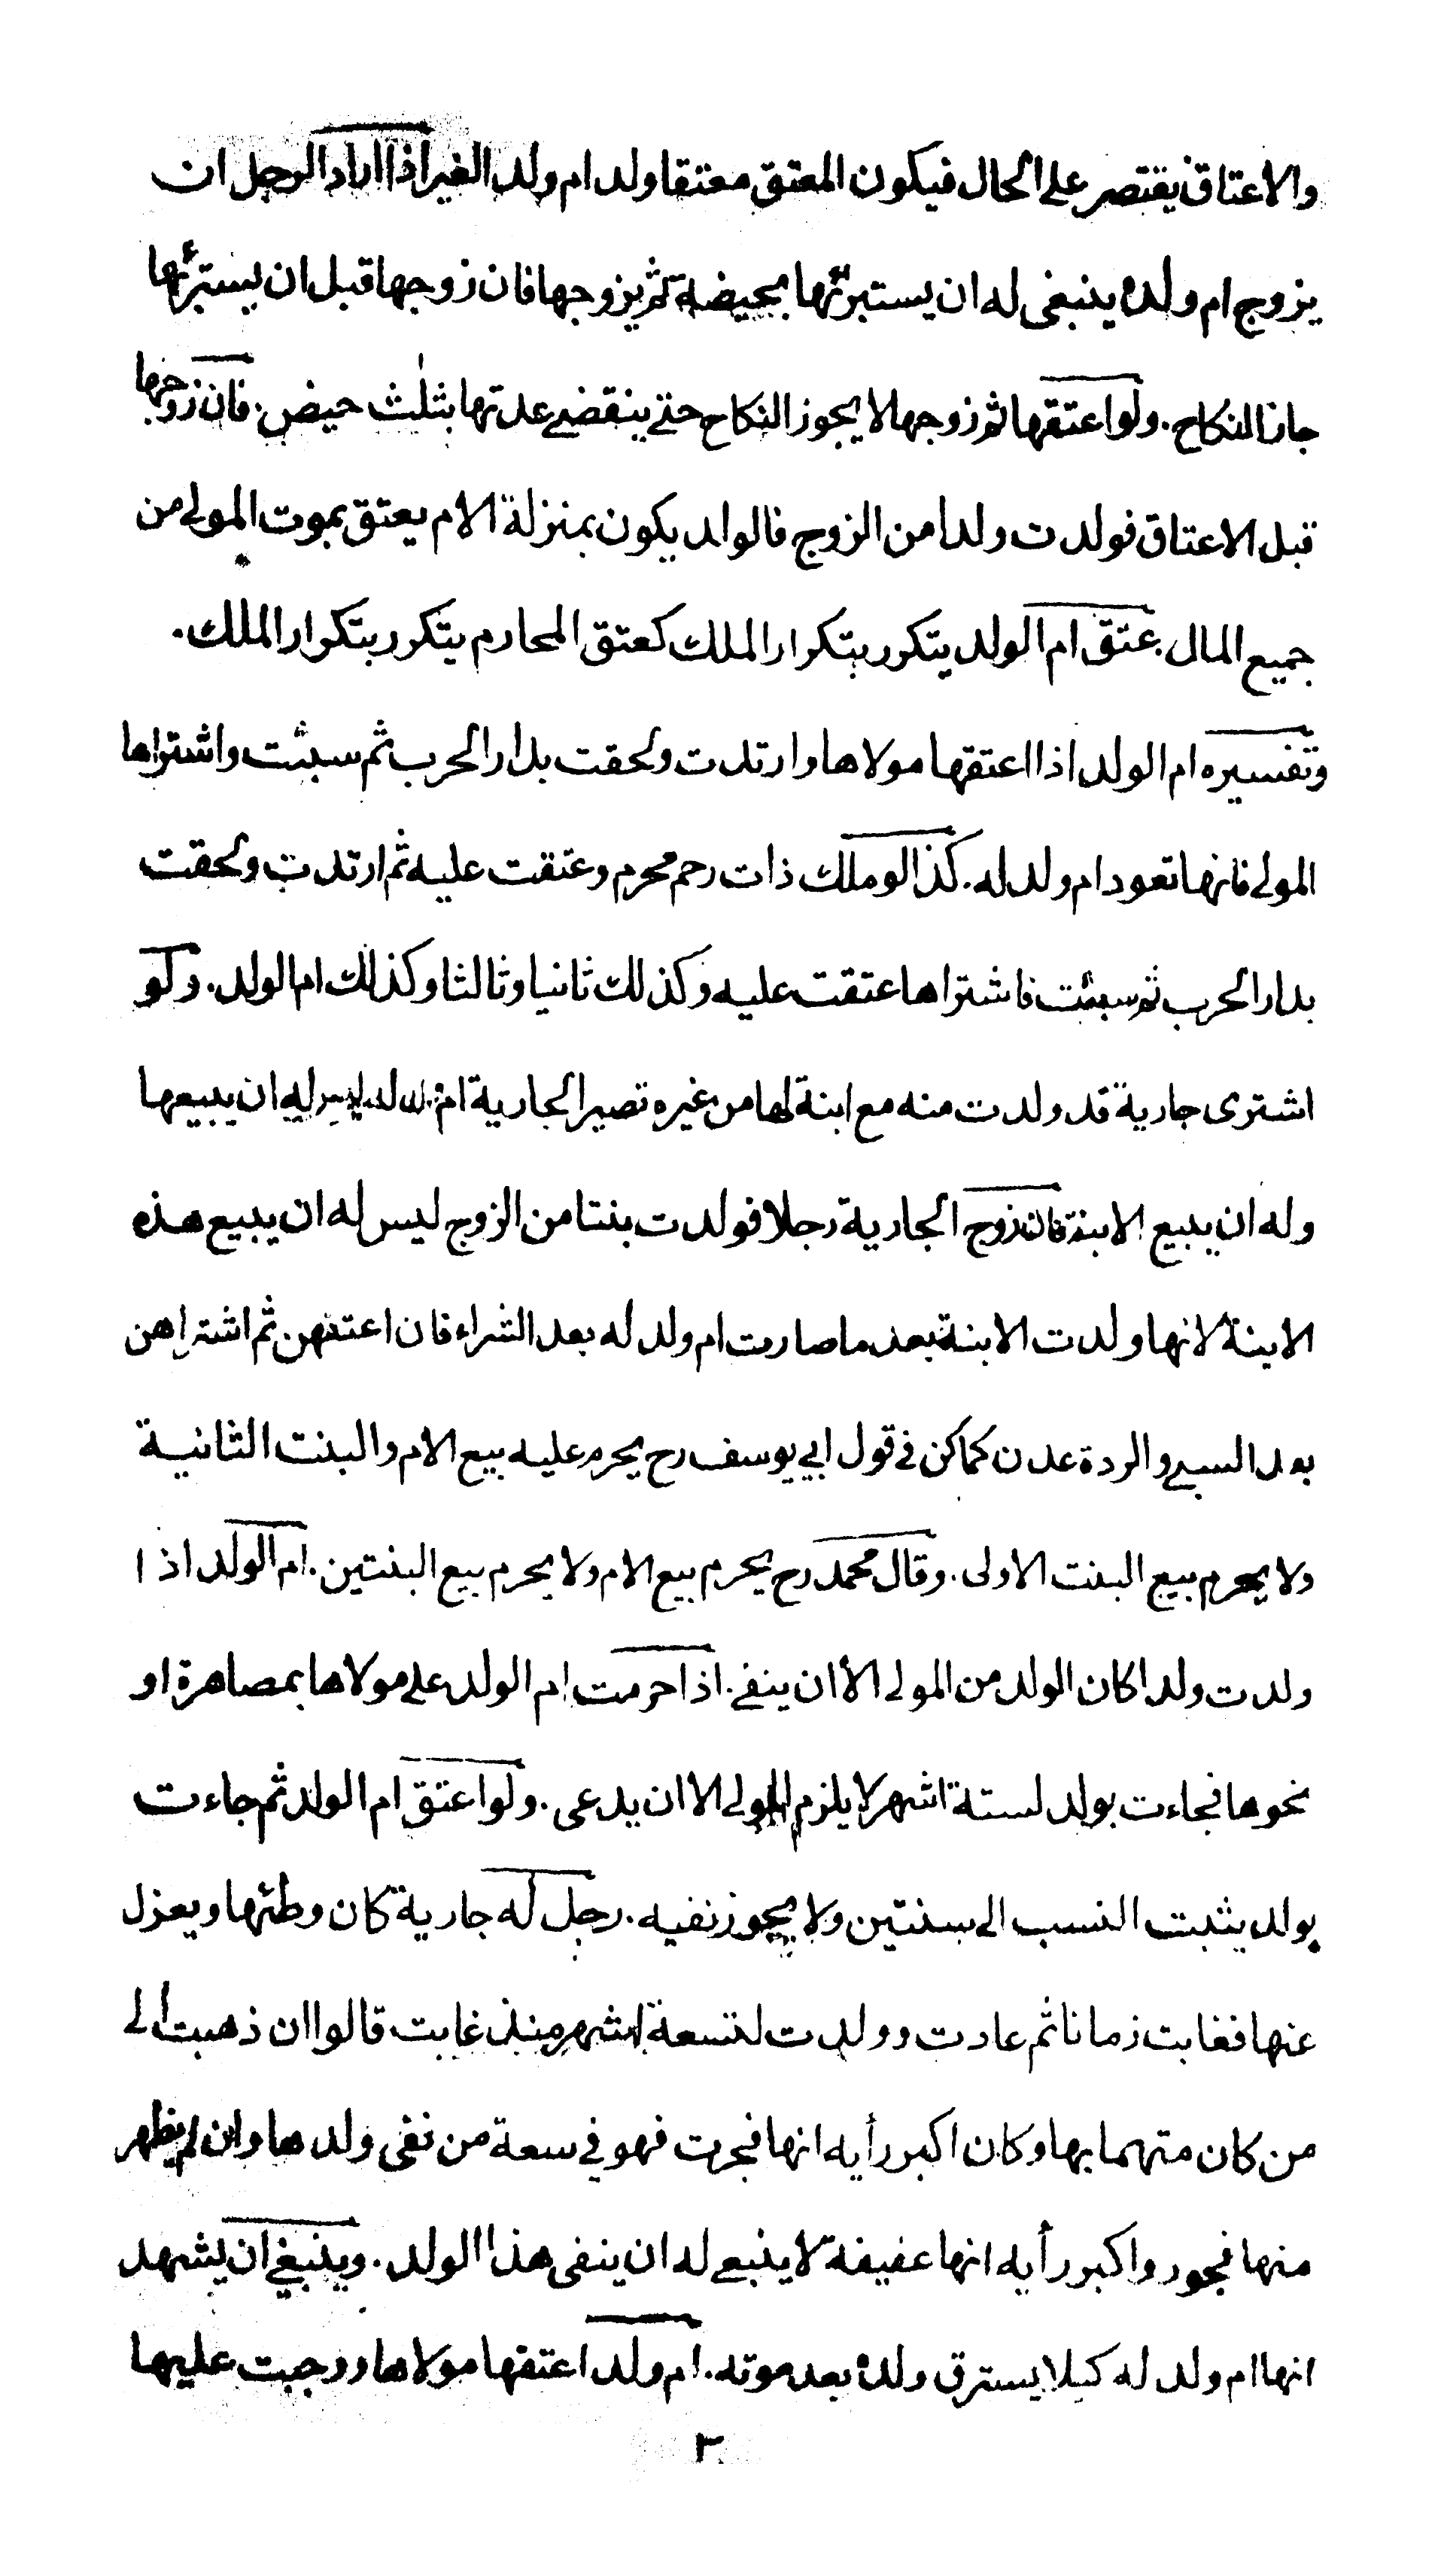 والاعتاق يقتصر على الحال فيكون المعتق معتقا ولد ام ولد الغير اذا اراد الرجل ان
يزوج ام ولده ينبغى له ان يستبرئها بحيضة ثم يزوجها فان زوجها قبل ان يستبرئها
جاز النكاح. ولو اعتقها ثم زوجها لا يجوز النكاح حتى ينقضى عدتها بثلث حيض. فان زوجها
قبل الاعتاق فولدت ولدا من الزوج فالولد يكون بمنزلة الام يعتق بموت المولى من
جميع المال. عتق ام الولد يتكرر بتكرار الملك كعتق المحارم يتكرر بتكرار الملك.
وتفسيره ام الولد اذا اعتقها مولاها وارتدت ولحقت بدار الحرب ثم سبئت واشتراها
المولى فانها تعود ام ولد له. كذا لو ملك ذات رحم محرم وعتقت عليه ثم ارتدت ولحقت
بدار الحرب ثم سبئت فاشتراها عتقت عليه وكذلك ثانيا وثالثا وكذلك ام الولد. ولو
اشترى جارية قد ولدت منه مع ابنة لها من غيره تصير الجارية ام ولد ليس له ان يبيعها
وله ان يبيع الابنة فان زوج الجارية رجلا فولدت بنتا من الزوج ليس له ان يبيع هذه
الابنة لانها ولدت الابنة بعد ما صارت ام ولد له بعد الشراء فان اعتقهن ثم اشتراهن
بعد السبى والردة عدن كما كن فى قول ابى يوسف رح يحرم عليه بيع الام والبنت الثانية
ولا يحرم بيع البنت الاولى. وقال محمد رح يحرم بيع الام ولا يحرم بيع البنتين. ام الولد اذا
ولدت ولدا كان الولد من المولى الا ان ينفى. اذا حرمت ام الولد على مولاها بمصاهرة او
نحوها فجاءت بولد لستة اشهر لا يلزم المولى الا ان يدعى. ولو اعتق ام الولد ثم جاءت
بولد يثبت النسب الى سنتين ولا يجوز نفيه. رجل له جارية كان وطئها ويعزل
عنها فغابت زمانا ثم عادت وولدت لتسعة اشهر منذ غابت قالوا ان ذهبت الى
من كان متهما بها وكان اكبر رأيه انها فجرت فهو فى سعة من نفى ولدها وان لم يظهر
منها فجور واكبر رأيه انها عفيفة لا ينبغى له ان ينفى هذا الولد. وينبغى ان يشهد
انها ام ولد له كيلا يسترق ولده بعد موته. ام ولد اعتقها مولاها ووجبت عليها
٣